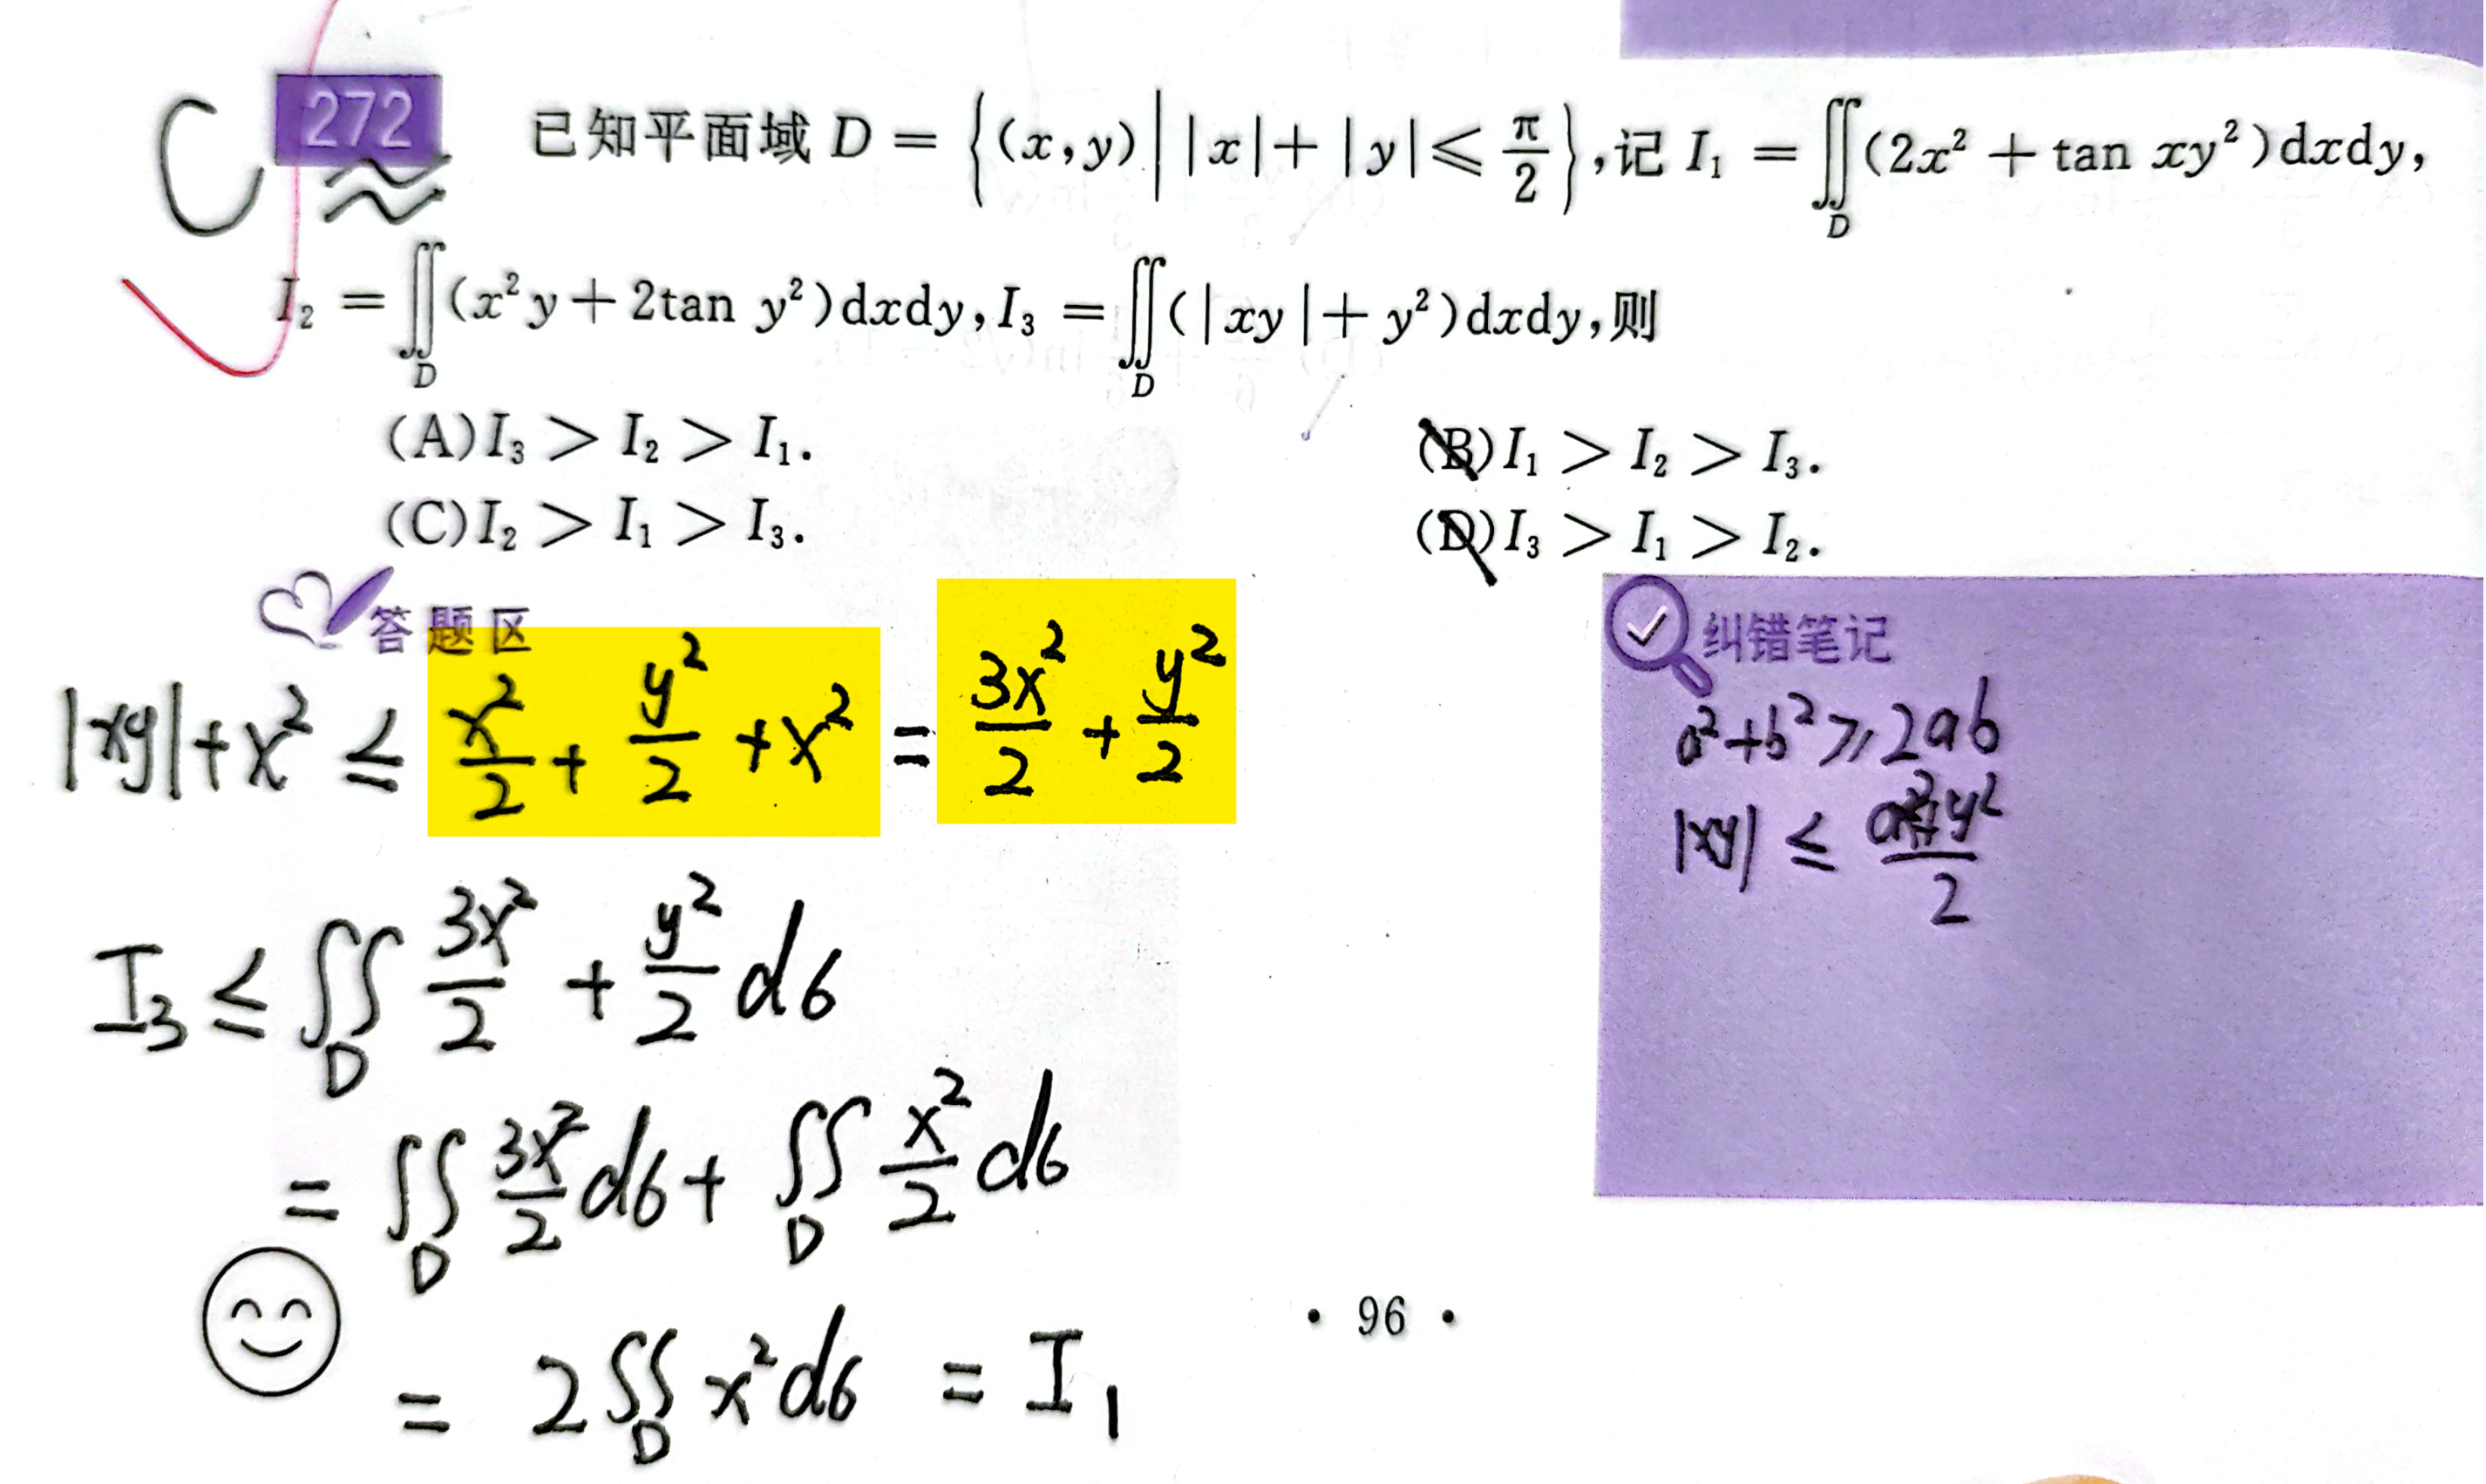 C 272 已知平面域 D = {(x,y) | |x| + |y| ≤ π/2},记 I₁ = ∬_D (2x² + tan xy²)dxdy,
I₂ = ∬_D (x²y + 2tan y²)dxdy, I₃ = ∬_D (|xy| + y²)dxdy,则
(A) I₃ > I₂ > I₁.
(B) I₁ > I₂ > I₃.
(C) I₂ > I₁ > I₃.
(D) I₃ > I₁ > I₂.
答题区
|xy| + x² ≤ x²/2 + y²/2 + x² = 3x²/2 + y²/2
I₃ ≤ ∬_D 3x²/2 + y²/2 dσ
= ∬_D 3x²/2 dσ + ∬_D x²/2 dσ
= 2∬_D x²dσ = I₁
纠错笔记
a² + b² ≥ 2ab
|xy| ≤ x²+y²/2
· 96 ·